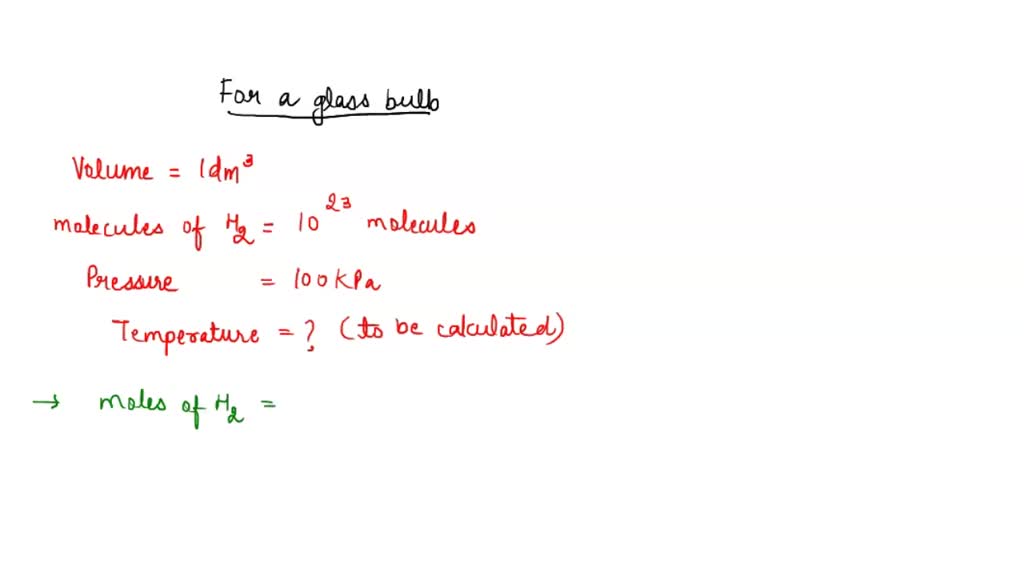 For a glass bulb
Volume = 1dm³
molecules of H₂ = 10²³ molecules
Pressure = 100KPa
Temperature = ? (to be calculated)
→ moles of H₂ =